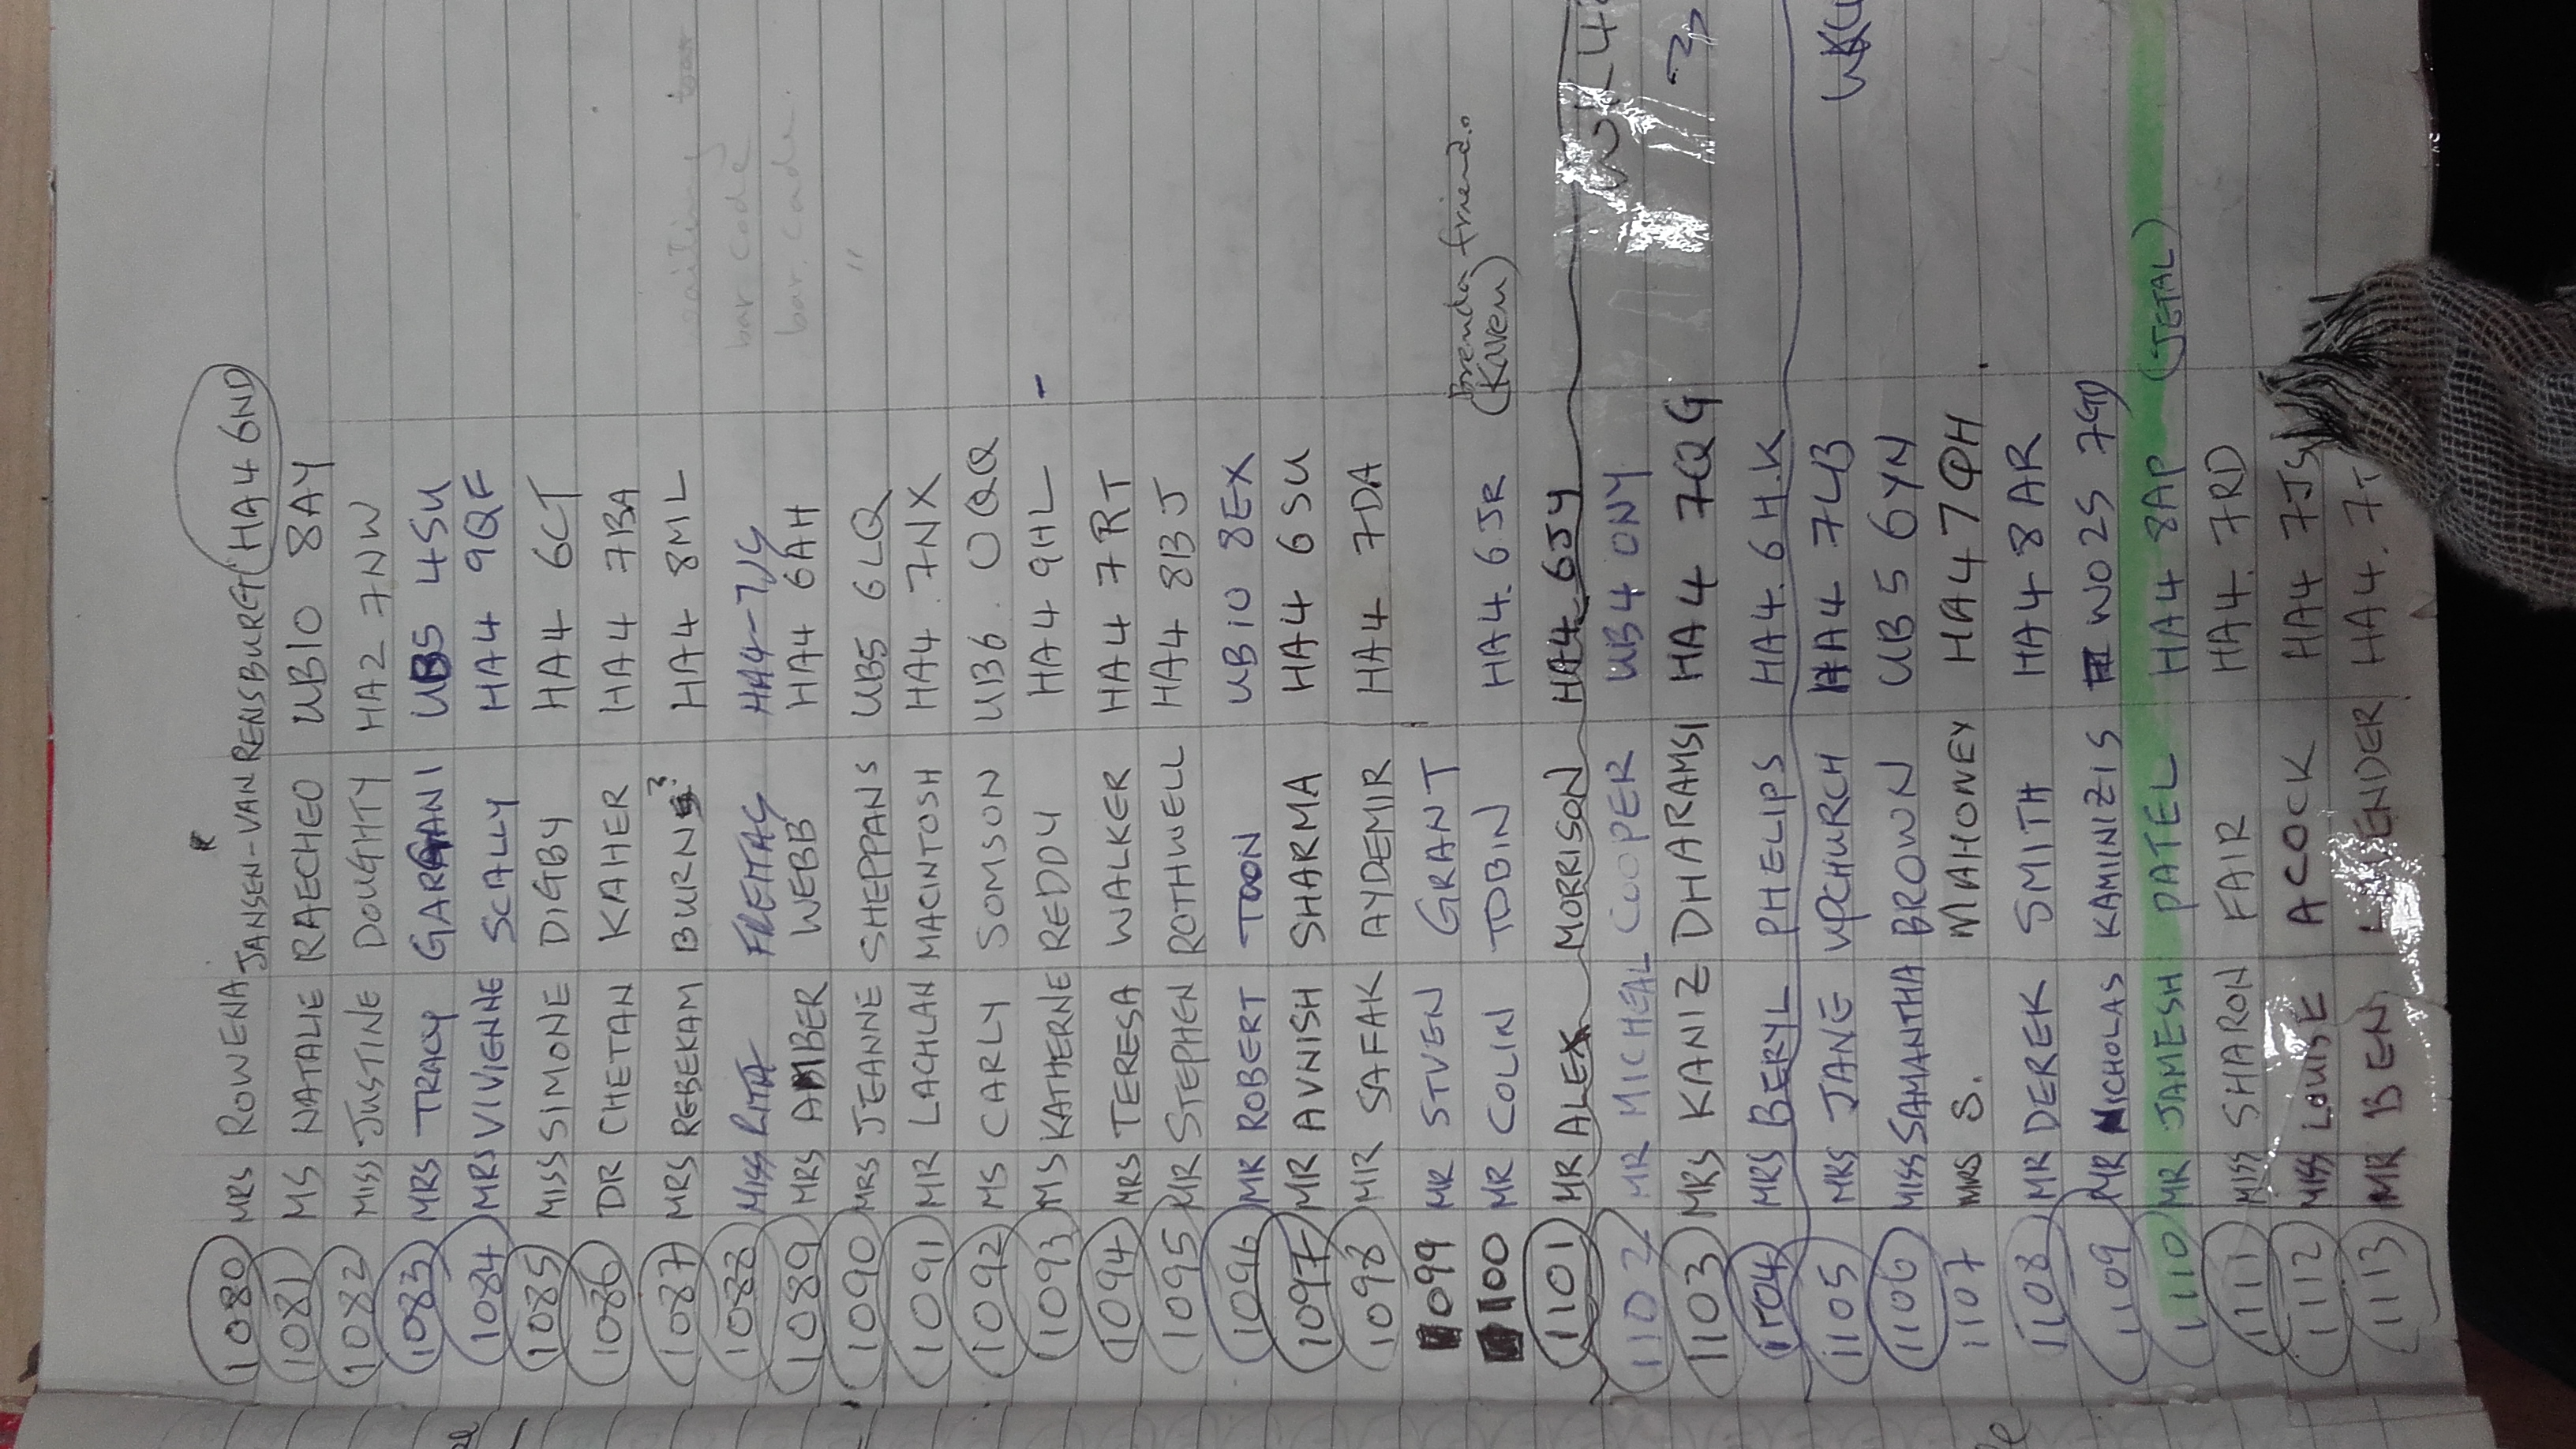 1080 MRS ROWENA JANSEN-VAN RENSBURG HA4 6ND
1081 MS NATALIE RAECHEO UB10 8AY
1082 MISS JUSTINE DOUGHTY HA2 7NW
1083 MRS TRACY GARGANI UB5 4SU
1084 MRS VIVIENNE SCALLY HA4 9QF
1085 MISS SIMONE DIGBY HA4 6CT
1086 DR CHETAN KAHER HA4 7BA
1087 MRS REBEKAM BURNS? HA4 8ML waiting bar
1088 MISS RITA FREITAS HA4-7JS bar code
1089 MRS AMBER WEBB HA4 6AH bar code.
1090 MRS JEANNE SHEPPANS UB5 6LQ "
1091 MR LACHLAN MACINTOSH HA4 7NX
1092 MS CARLY SOMSON UB6 0QQ
1093 MS KATHERNE REDDY HA4 9HL -
1094 MRS TERESA WALKER HA4 7RT
1095 MR STEPHEN ROTHWELL HA4 8BJ
1096 MR ROBERT TOON UB10 8EX
1097 MR AVNISH SHARMA HA4 6SU
1098 MR SAFAK AYDEMIR HA4 7DA
1099 MR STVEN GRANT
Brenda friend.
1100 MR COLIN TOBIN HA4. 6JR (Karen)
1101 MR ALEX MORRISON HA4 6JY
1102 MR MICHEAL COOPER UB4 0NY WK 4
1103 MRS KANIZ DHARAMSI HA4 7QG
1104 MRS BERYL PHELIPS HA4. 6H.K
1105 MRS JANE UPCHURCH HA4 7LB
1106 MISS SAMANTHA BROWN UB5 6YN
1107 MRS S. MAHONEY HA4 7QH
1108 MR DEREK SMITH HA4 8AR
1109 MR NICHOLAS KAMIINIZIS WO2S 7GD
1110 MR JAMESH PATEL HA4 8AP (JETAL)
1111 MISS SHARON FAIR HA4. 7RD
1112 MISS LOUISE ACOCK HA4 7JS
1113 MR BEN LAVENDER HA4. 7